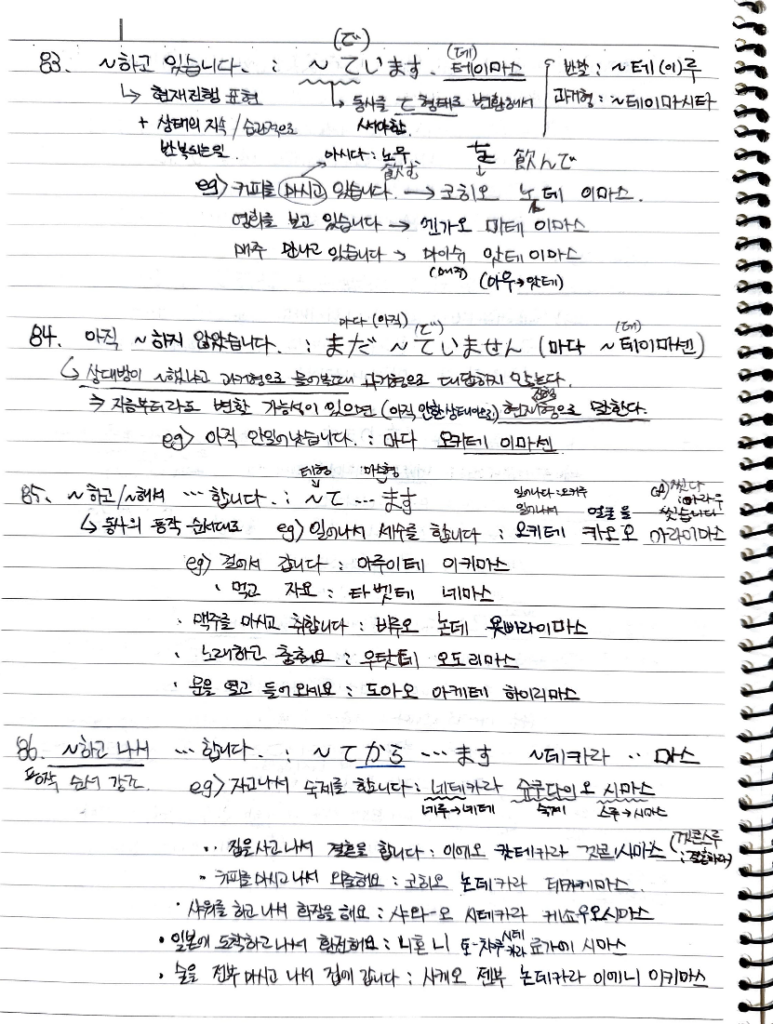 (で)
83. ~하고 있습니다. : ~ ています. (데) 테이마스 반말 : ~테(이)루
↳ 현재진행 표현 ↳ 동사를 て 형태로 변환해서 써야함. 과거형 : ~테이마시타
+ 상태의 지속 / 습관적으로 반복되는일
마시다 : 노무 飲む 飲んで
eg> 커피를 마시고 있습니다. → 코히오 노ㄴ데 이마스.
영화를 보고 있습니다 → 엔가오 미테 이마스
매주 만나고 있습니다 → 마이슈 앗테 이마스
(매주) (아우→앗테)
마다 (아직) (で) (데)
84. 아직 ~하지 않았습니다. : まだ ~ ていません (마다 ~테이마센)
↳ 상대방이 ~했냐고 과거형으로 물어볼때 과거형으로 대답하지 않는다.
⇒ 지금부터라도 변환 가능성이 있으면 (아직 안한상태이므로) 현재형으로 말한다.
eg> 아직 안일어났습니다. : 마다 오키테 이마센
테형 마스형
85. ~하고/~해서 … 합니다. : ~て … ます
일어나다 : 오키루 일어나서 얼굴을 씻다 : 아라우 씻습니다
↳ 동사의 동작 순서대로 eg> 일어나서 세수를 합니다 : 오키테 카오오 아라이마스
eg> 걸어서 갑니다 : 아루이테 이키마스
· 먹고 자요 : 타벳테 네마스
· 맥주를 마시고 취합니다 : 비루오 논데 욧빠라이마스
· 노래하고 춤춰요 : 우탓테 오도리마스
· 문을 열고 들어오세요 : 도아오 아케테 하이리마스
86. ~하고 나서 … 합니다. : ~ てから … ます ~테카라 ‥ 마스
동작 순서 강조. eg> 자고나서 숙제를 합니다 : 네테카라 슈쿠다이오 시마스
네루→네테 숙제 스루→시마스
‥ 집을사고나서 결혼을 합니다 : 이에오 캇테카라 겟콘시마스 (겟콘스루 : 결혼하다)
· 커피를마시고나서 외출해요 : 코히오 논데카라 데카케마스.
· 샤워를 하고 나서 화장을 해요 : 샤와-오 시테카라 케쇼우오시마스
· 일본에 도착하고나서 환전해요 : 니혼 니 토-챠쿠 시테카라 료가에 시마스
· 술을 전부 마시고 나서 집에 갑니다 : 사케오 젠부 논데카라 이에니 이키마스